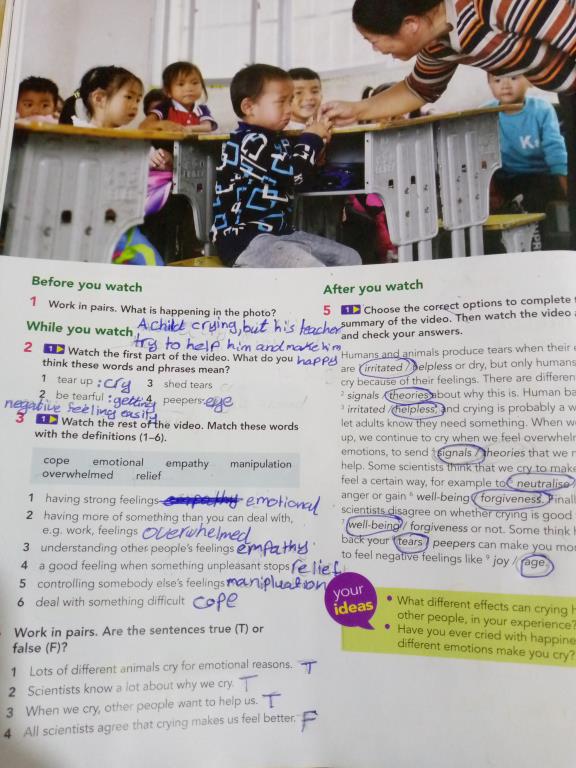 Before you watch
1 Work in pairs. What is happening in the photo?
A child crying, but his teacher
try to help him and make him
happy
While you watch
2 Watch the first part of the video. What do you
think these words and phrases mean?
1 tear up : cry
3 shed tears
2 be tearful : getting
negative feeling easily
4 peepers: eye
3 Watch the rest of the video. Match these words
with the definitions (1–6).
cope emotional empathy manipulation
overwhelmed relief
1 having strong feelings empathy emotional
2 having more of something than you can deal with,
e.g. work, feelings overwhelmed
3 understanding other people's feelings empathy
4 a good feeling when something unpleasant stops relief
5 controlling somebody else's feelings manipluation
6 deal with something difficult cope
Work in pairs. Are the sentences true (T) or
false (F)?
1 Lots of different animals cry for emotional reasons. T
2 Scientists know a lot about why we cry. T
3 When we cry, other people want to help us. T
4 All scientists agree that crying makes us feel better. F
After you watch
5 Choose the correct options to complete
summary of the video. Then watch the video
and check your answers.
Humans and animals produce tears when their
are irritated / helpless or dry, but only humans
cry because of their feelings. There are different
2 signals / theories about why this is. Human
3 irritated / helpless, and crying is probably a
let adults know they need something. When
up, we continue to cry when we feel
emotions, to send 4 signals / theories that we
help. Some scientists think that we cry to make
feel a certain way, for example to 5 neutralise
anger or gain 6 well-being / forgiveness.
scientists disagree on whether crying is good
well-being / forgiveness or not. Some think
back your 8 tears / peepers can make you
to feel negative feelings like 9 joy / rage.
your
ideas
• What different effects can crying
other people, in your experience?
• Have you ever cried with
different emotions make you cry?